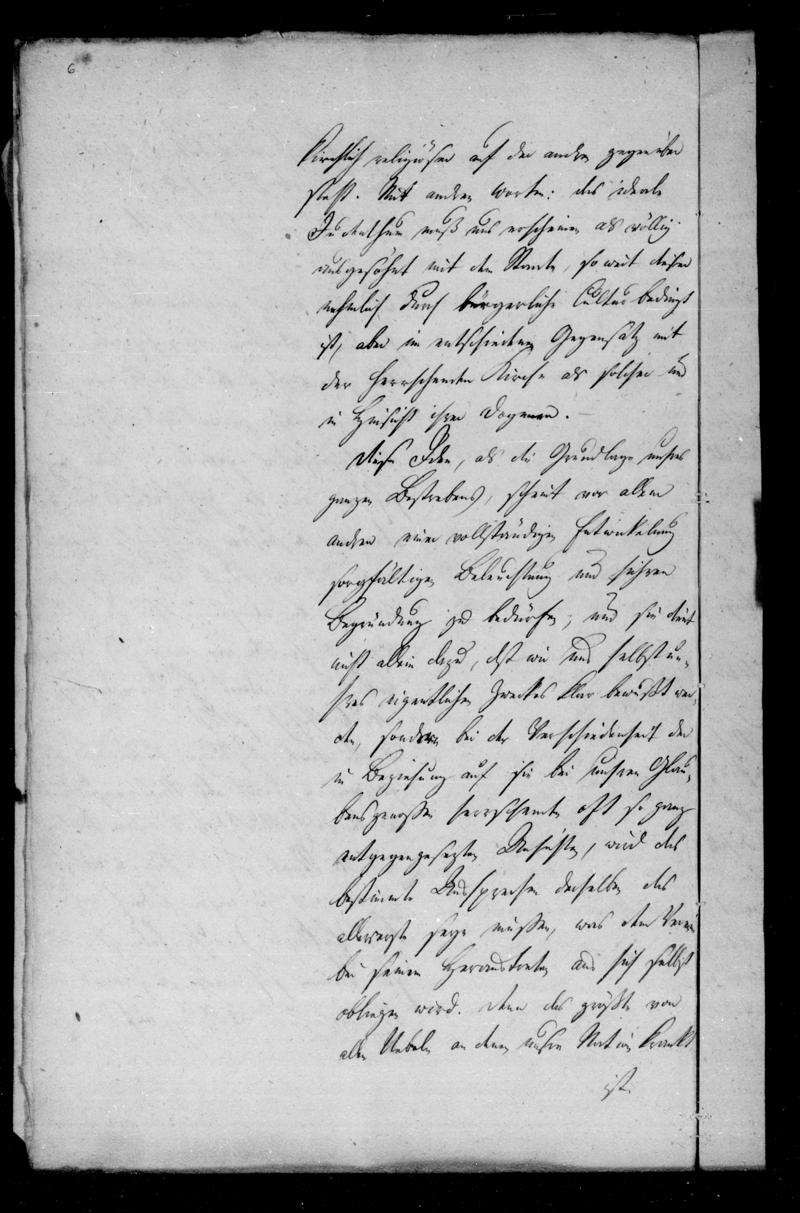 6
kirchlich religiösen auf der andern gegenüber
steht. Mit andern Worten: das ideale
Judenthum muß uns erscheinen als völlig
ausgesöhnt mit dem Staate, so weit dieser
nehmlich durch bürgerliche Cultur bedingt
ist, aber im entschiednen Gegensatz mit
der herrschenden Kirche als solcher und
in Hinsicht ihrer Dogmen. –
Diese Idee, als die Grundlage unsres
ganzen Bestrebens, scheint vor allem
andern einer vollständigen Entwickelung
sorgfältigen Beleuchtung und sichren
Begründung zu bedürfen; und sie dient
nicht allein dazu, daß wir uns selbst un-
sres eigentlichen Zweckes klar bewußt wer-
den, sondern bei der Verschiedenheit der
in Beziehung auf sie bei unsren Glau-
bensgenossen herrschenden oft so ganz
entgegengesezten Ansichten, wird das
bestimmte Aussprechen derselben das
allererste seyn müssen, was dem Verein
bei seinem Heraustreten aus sich selbst
obliegen wird. Denn das größte von
allen Uebeln an denen unsre Nation krank
ist